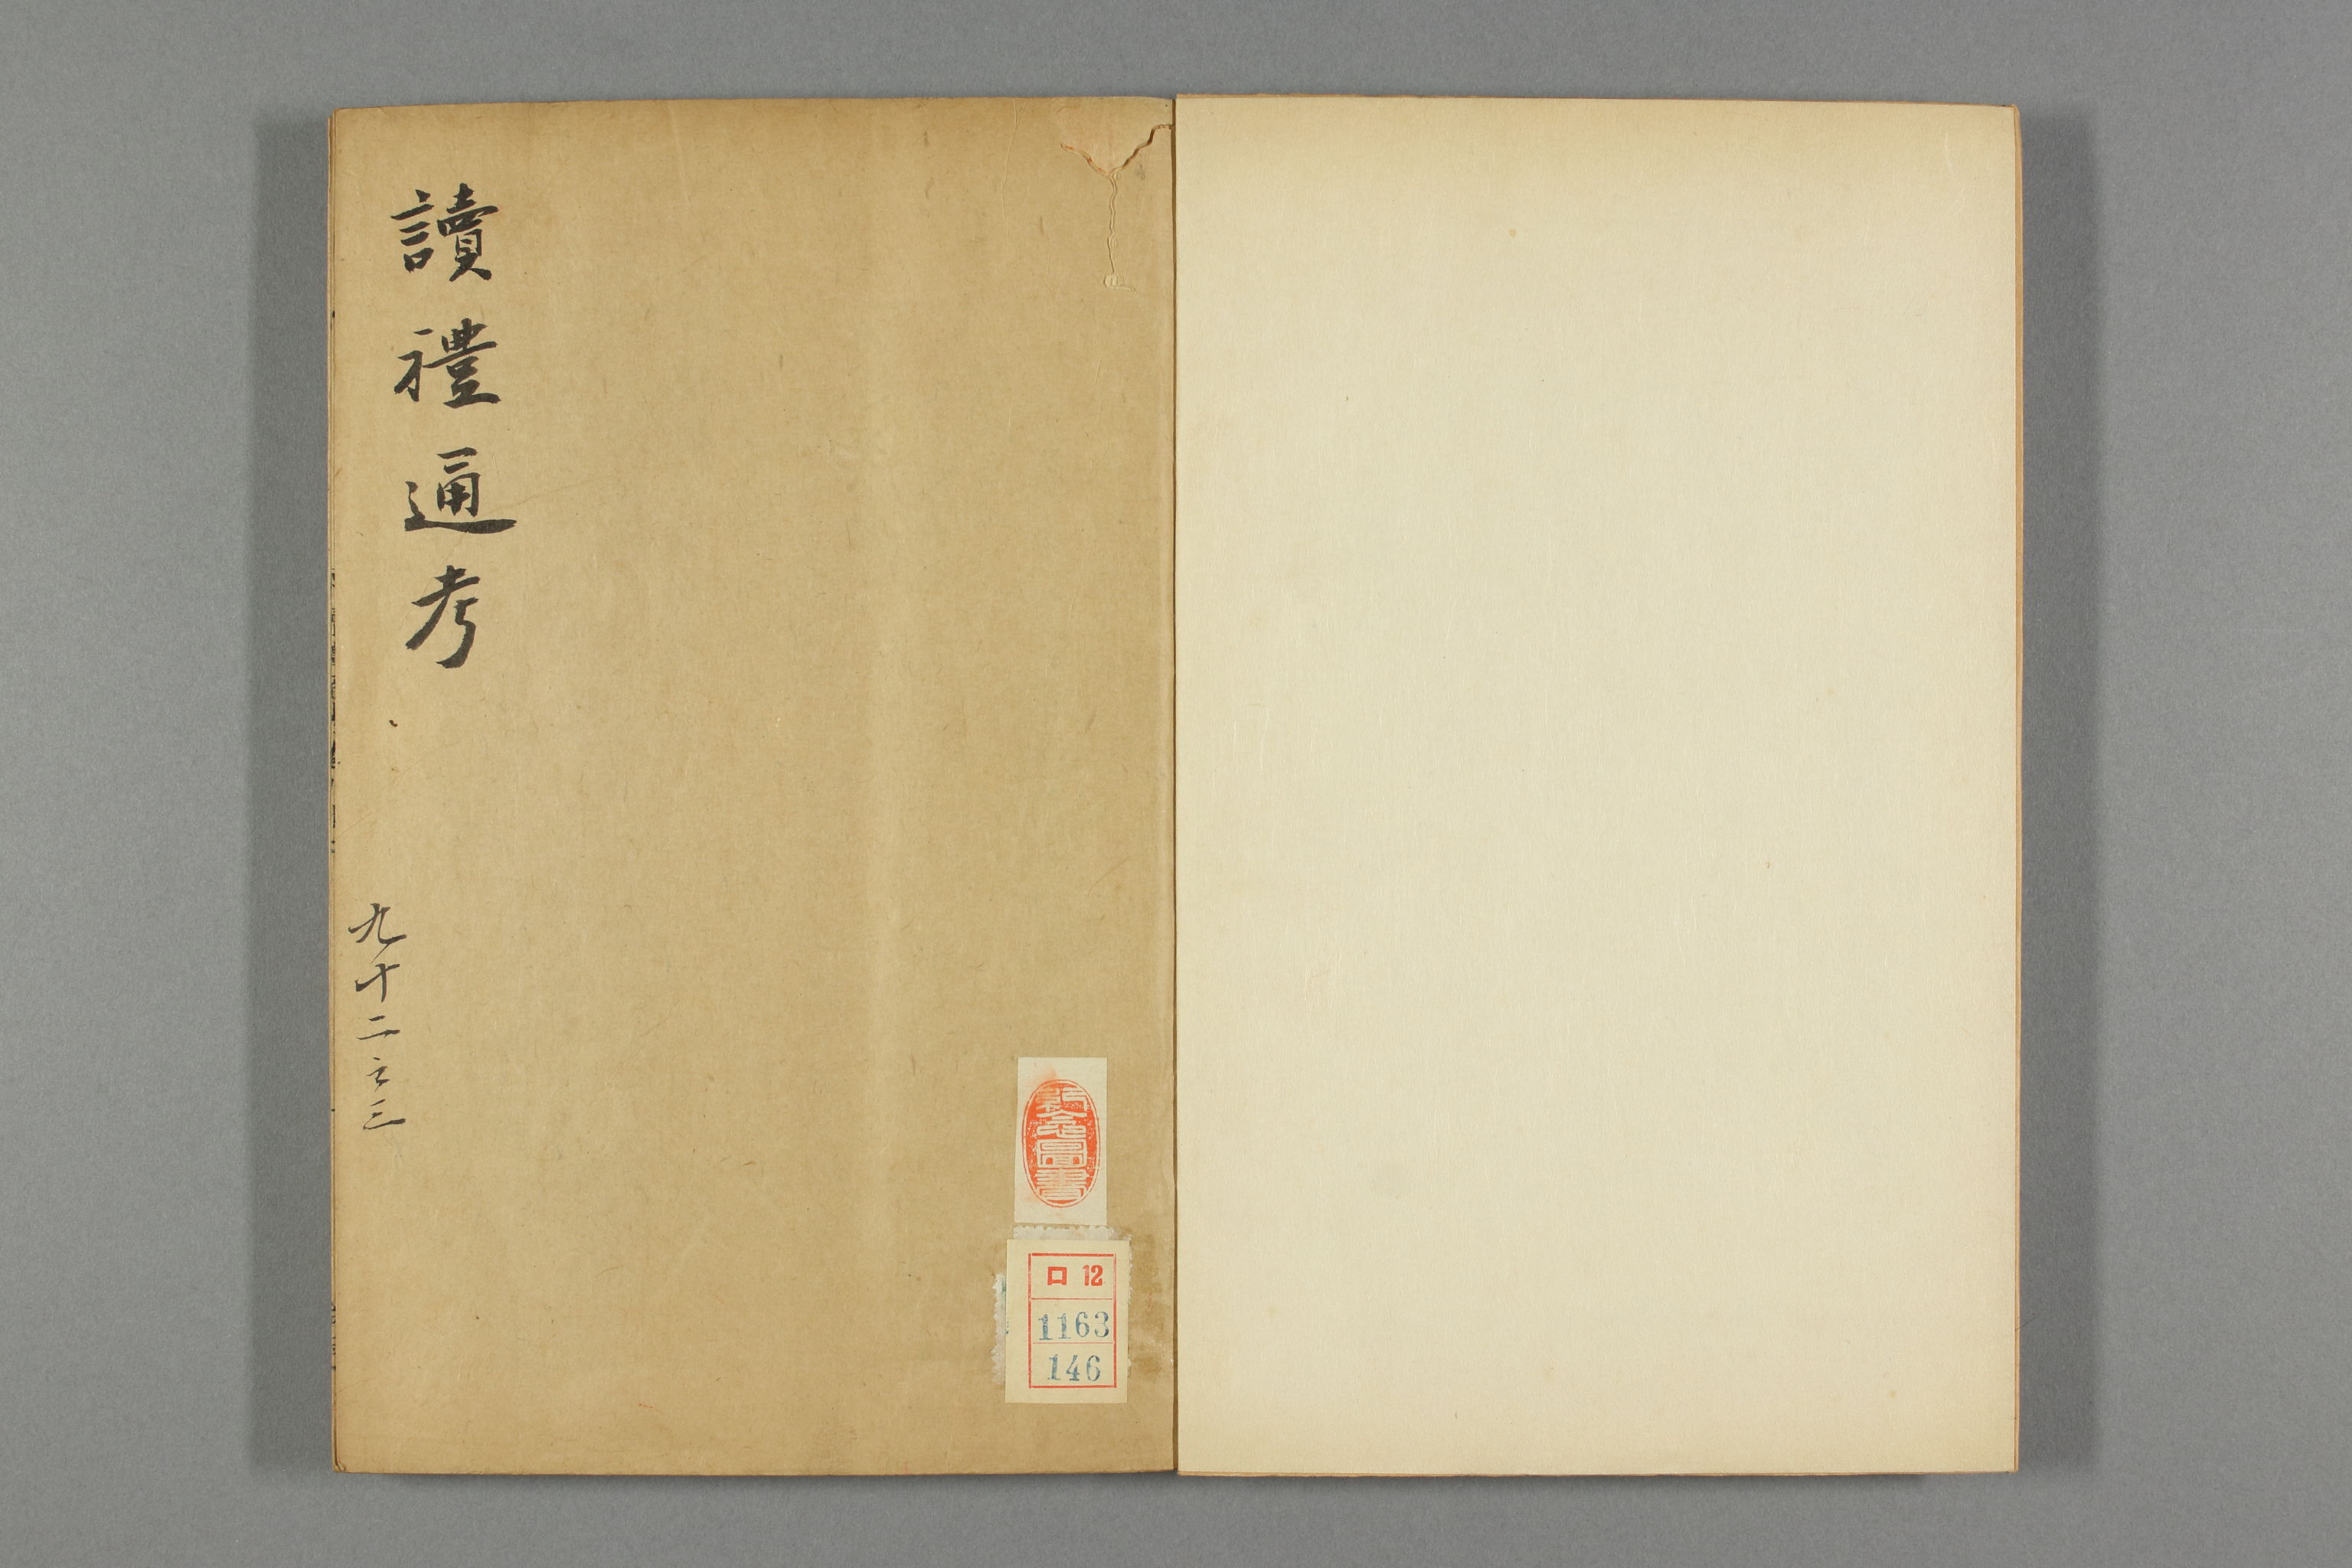 讀禮通考
九十二之三
圖書
ロ 12
1163
146